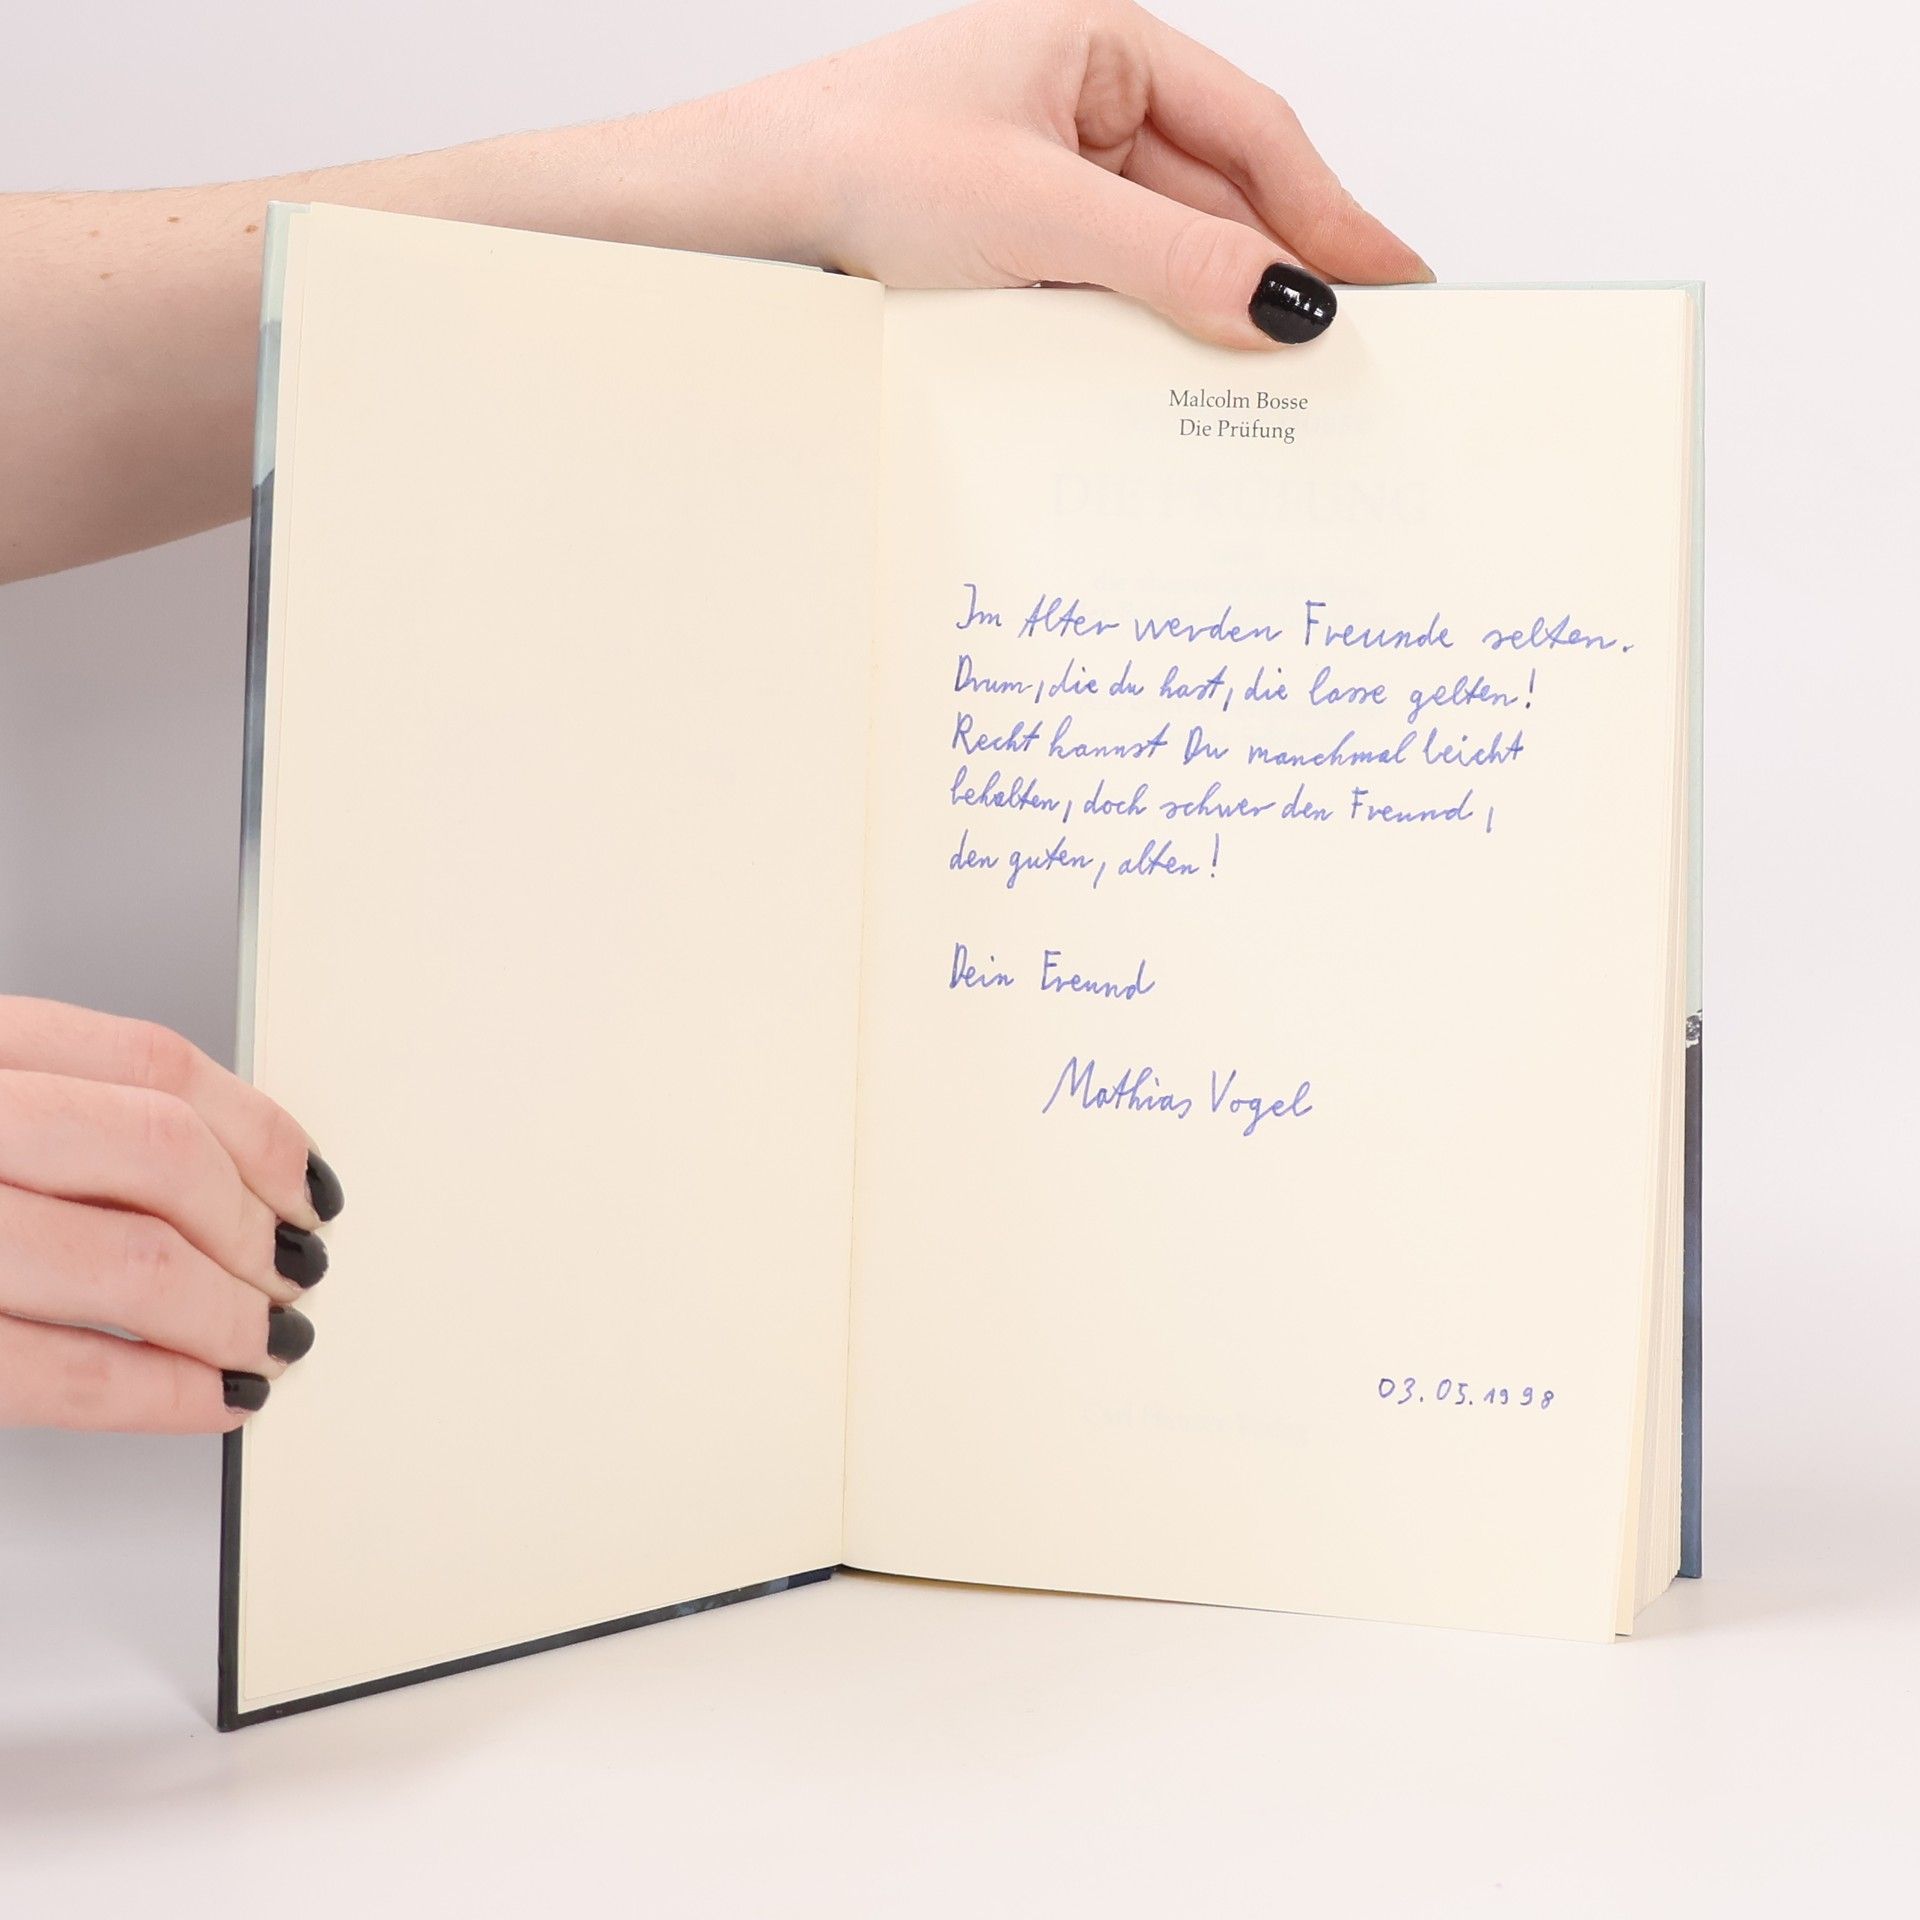 Malcolm Bosse
Die Prüfung
DIE PRÜFUNG
Im Alter werden Freunde selten.
Drum, die du hast, die lasse gelten!
Recht kannst Du manchmal leicht
behalten, doch schwer den Freund,
den guten, alten!
Dein Freund
Mathias Vogel
03.05.1998